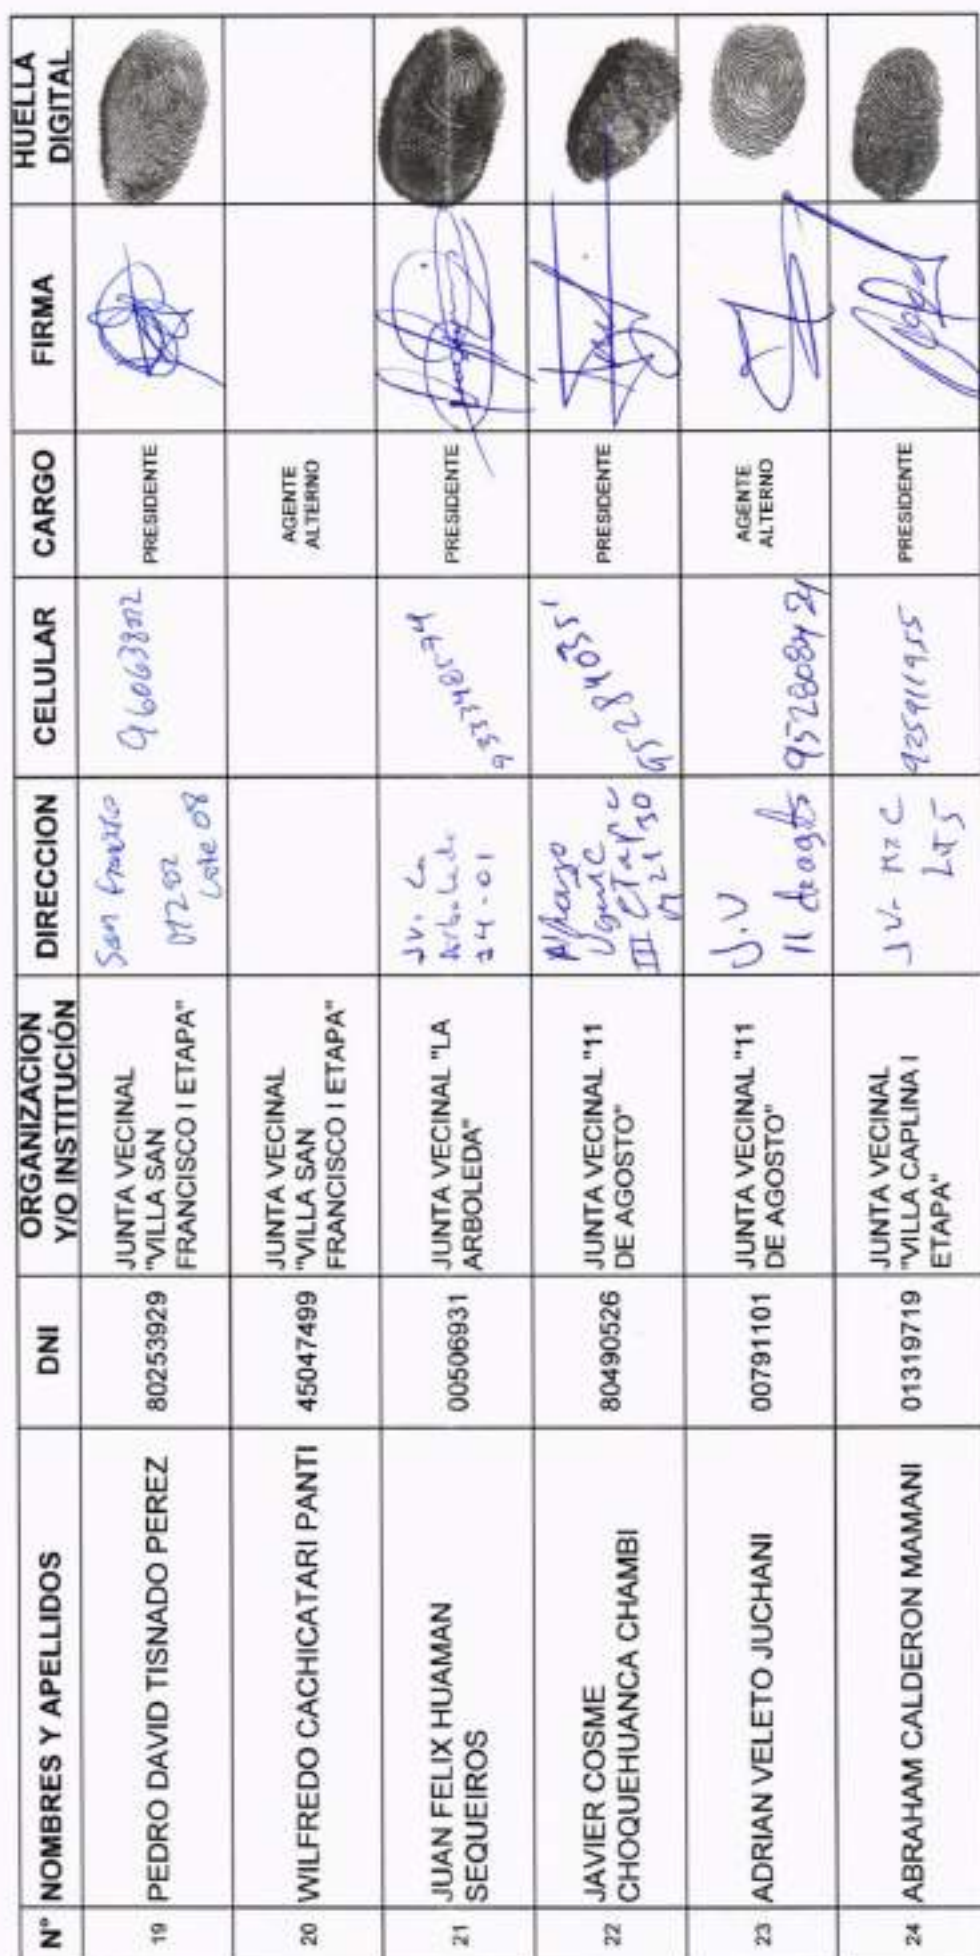 N° NOMBRES Y APELLIDOS DNI ORGANIZACION Y/O INSTITUCIÓN DIRECCION CELULAR CARGO FIRMA HUELLA DIGITAL
19 PEDRO DAVID TISNADO PEREZ 80253929
JUNTA VECINAL
"VILLA SAN
FRANCISCO I ETAPA"
San Francisco
Mz 02
Lote 08
960638072
PRESIDENTE
20 WILFREDO CACHICATARI PANTI 45047499
JUNTA VECINAL
"VILLA SAN
FRANCISCO I ETAPA"
AGENTE
ALTERNO
21 JUAN FELIX HUAMAN
SEQUEIROS
00506931
JUNTA VECINAL "LA
ARBOLEDA"
JV. La
Arboleda
24-01
PRESIDENTE
22 JAVIER COSME
CHOQUEHUANCA CHAMBI
80490526
JUNTA VECINAL "11
DE AGOSTO"
Alfonso
Ugarte
III Etapa
30
PRESIDENTE
23 ADRIAN VELETO JUCHANI 00791101
JUNTA VECINAL "11
DE AGOSTO"
J.V
11 de agosto
AGENTE
ALTERNO
24 ABRAHAM CALDERON MAMANI 01319719
JUNTA VECINAL
"VILLA CAPLINA I
ETAPA"
JV- MZ C
LT 5
925911955
PRESIDENTE